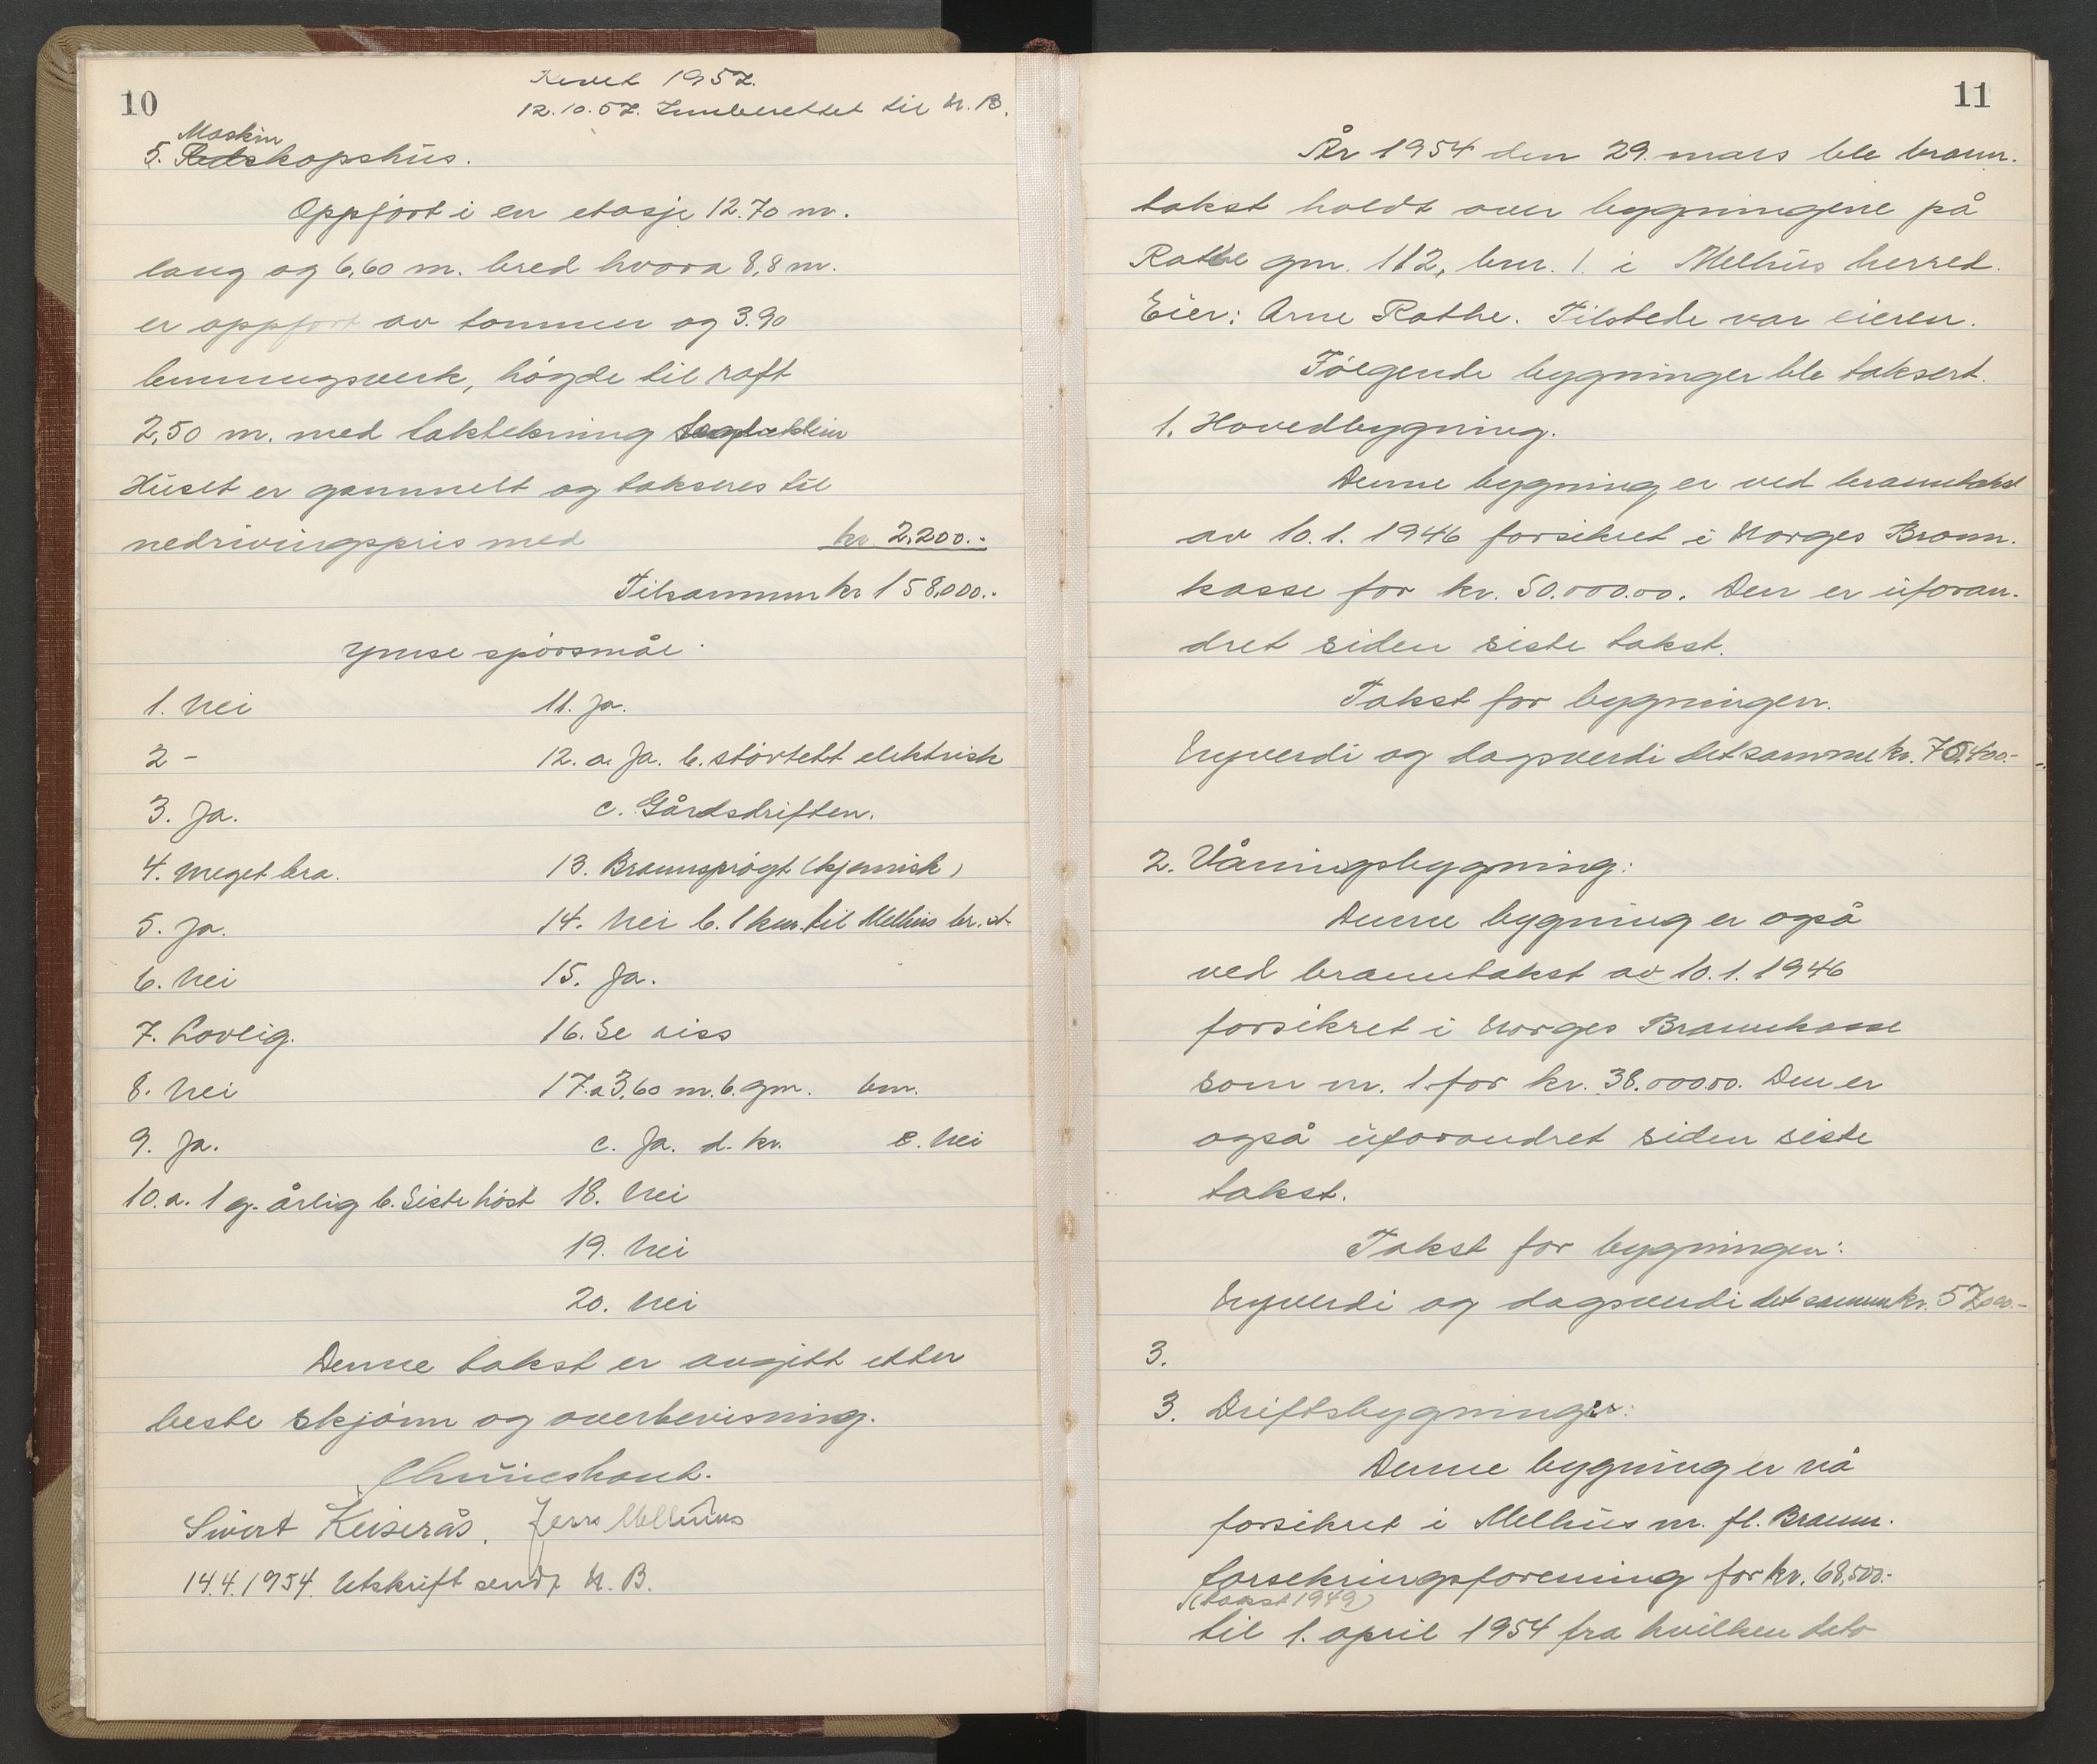 10
Revet 1957.
12.10.57. Innberettet til N.B.
Maskin
5. Redskapshus.
Oppført i en etasje 12.70 m.
lang og 6,60 m. bred hvora 8,8 m.
er oppført av tømmer og 3.90
bindingsverk, høgde til raft
2,50 m. med taktekning
Huset er gammelt og takseres til
nedrivingspris med kr. 2.200.-
Tilsammen kr 158.000.-
Ymse spørsmål.
1. Nei
2 -
3. Ja.
4. Meget bra.
5. Ja.
6. Nei
7. Lovlig.
8. Nei
9. Ja.
10.a. 1 g. årlig b. Siste høst
11. Ja.
12. a. Ja. b. støvtett elektrisk
c. Gårdsdriften.
13. Brannsprøyt (kjemisk)
14. Nei b. 1 km. til Melhus br.st
15. Ja.
16. Se riss
17.a 3,60 m. b. gnr. bnr.
c. Ja. d. kr. e. Nei
18. Nei
19. Nei
20. Nei
Denne takst er avgitt etter
beste skjønn og overbevisning.
Sivert Keiserås. Jens Melhuus
14.4.1954. Utskrift sendt N.B.
11
År 1954 den 29. mars ble brann-
takst holdt over bygningene på
Rathe gnr. 112, bnr. 1. i Melhus herred.
Eier: Arne Rathe. Tilstede var eieren.
Følgende bygninger ble taksert.
1. Hovedbygning.
Denne bygning er ved branntakst
av 10.1.1946 forsikret i Norges Brann-
kasse for kr. 50.000.00. Den er uforan-
dret siden siste takst.
Takst for bygningen.
Nyverdi og dagsverdi det samme kr. 75.400.-
2. Våningsbygning:
Denne bygning er også
ved branntakst av 10.1.1946
forsikret i Norges Brannkasse
som nr. 1. for kr. 38.000.00. Den er
også uforandret siden siste
takst.
Takst for bygningen:
Nyverdi og dagsverdi det samme kr. 57.000.-
3.
3. Driftsbygninger:
Denne bygning er nå
forsikret i Melhus m. fl. Brann-
forsekringsforening for kr. 68.500.-
(takst 1949)
til 1. april 1954 fra hvilken dato